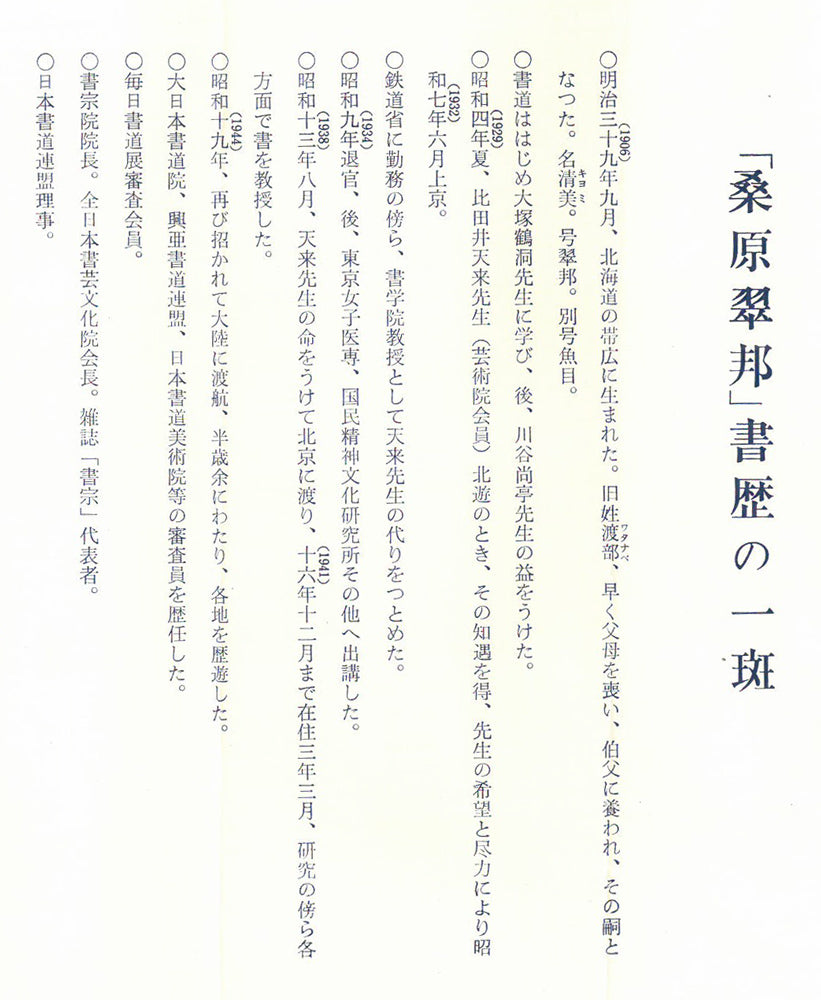 「桑原翠邦」書歴の一斑
○明治三十九年(1906)九月、北海道の帯広に生まれた。旧姓渡部(ワタナベ)、早く父母を喪い、伯父に養われ、その嗣と
なつた。名清美(キヨミ)。号翠邦。別号魚目。
○書道ははじめ大塚鶴洞先生に学び、後、川谷尚亭先生の益をうけた。
○昭和四年(1929)夏、比田井天来先生（芸術院会員）北遊のとき、その知遇を得、先生の希望と尽力により昭
和七年(1932)六月上京。
○鉄道省に勤務の傍ら、書学院教授として天来先生の代りをつとめた。
○昭和九年(1934)退官、後、東京女子医専、国民精神文化研究所その他へ出講した。
○昭和十三年(1938)八月、天来先生の命をうけて北京に渡り、十六年(1941)十二月まで在住三年三月、研究の傍ら各
方面で書を教授した。
○昭和十九年(1944)、再び招かれて大陸に渡航、半歳余にわたり、各地を歴遊した。
○大日本書道院、興亜書道連盟、日本書道美術院等の審査員を歴任した。
○毎日書道展審査会員。
○書宗院院長。全日本書芸文化院会長。雑誌「書宗」代表者。
○日本書道連盟理事。